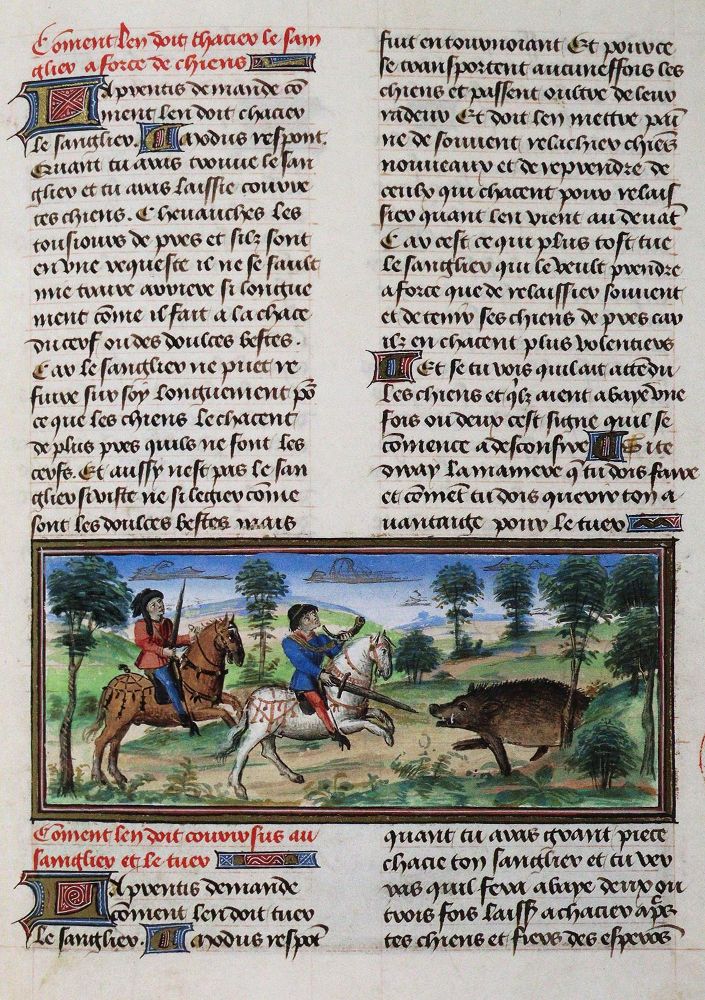 Coment len doit chacier le san
glier a force de chiens
Laprentis demande cō
ment len doit chacier
le sanglier. Modus respont.
Quant tu auras trouue le san
glier et tu auras laissie courre
tes chiens. Cheuauches les
tousiours de pres et silz sont
en vne requeste il ne se fault
mie traire arriere si longue
ment cōme il fait a la chace
du cerf ou des doulces bestes.
Car le sanglier ne puet re
fuire sur soy longuement po
ce que les chiens le chacent
de plus pres quils ne font les
cerfs. Et aussy nest pas le san
glier si viste ne si legier cōme
sont les doulces bestes mais
fuit en tournoiant Et pour ce
se transportent aucuneffois les
chiens et passent oultre de leur
radeur Et doit len mettre pai
ne de souuent relachier chiēs
nouueaux et de reprendre de
ceulx qui chacent pour relais
sier quant len vient au deuāt
Car cest ce qui plus tost tue
le sanglier qui le veult prendre
a force que de relaissier souuent
et de tenir ses chiens de pres car
ilz en chacent plus volentiers
Et se tu vois quil ait attēdu
les chiens et qlz aient abaye vne
fois ou deux cest signe quil se
cōmence a desconfire Si te
diray la maniere q tu dois faire
et comēt tu dois querir ton a
uantaige pour le tuer
Coment len doit courir sus au
sanglier et le tuer
Laprentis demande
coment len doit tuer
le sanglier. Modus respōt
quant tu auras grant piece
chacie ton sanglier et tu ver
ras quil fera abaye deux ou
trois fois laiss a chacier apṛs
tes chiens et fiers des esperōs